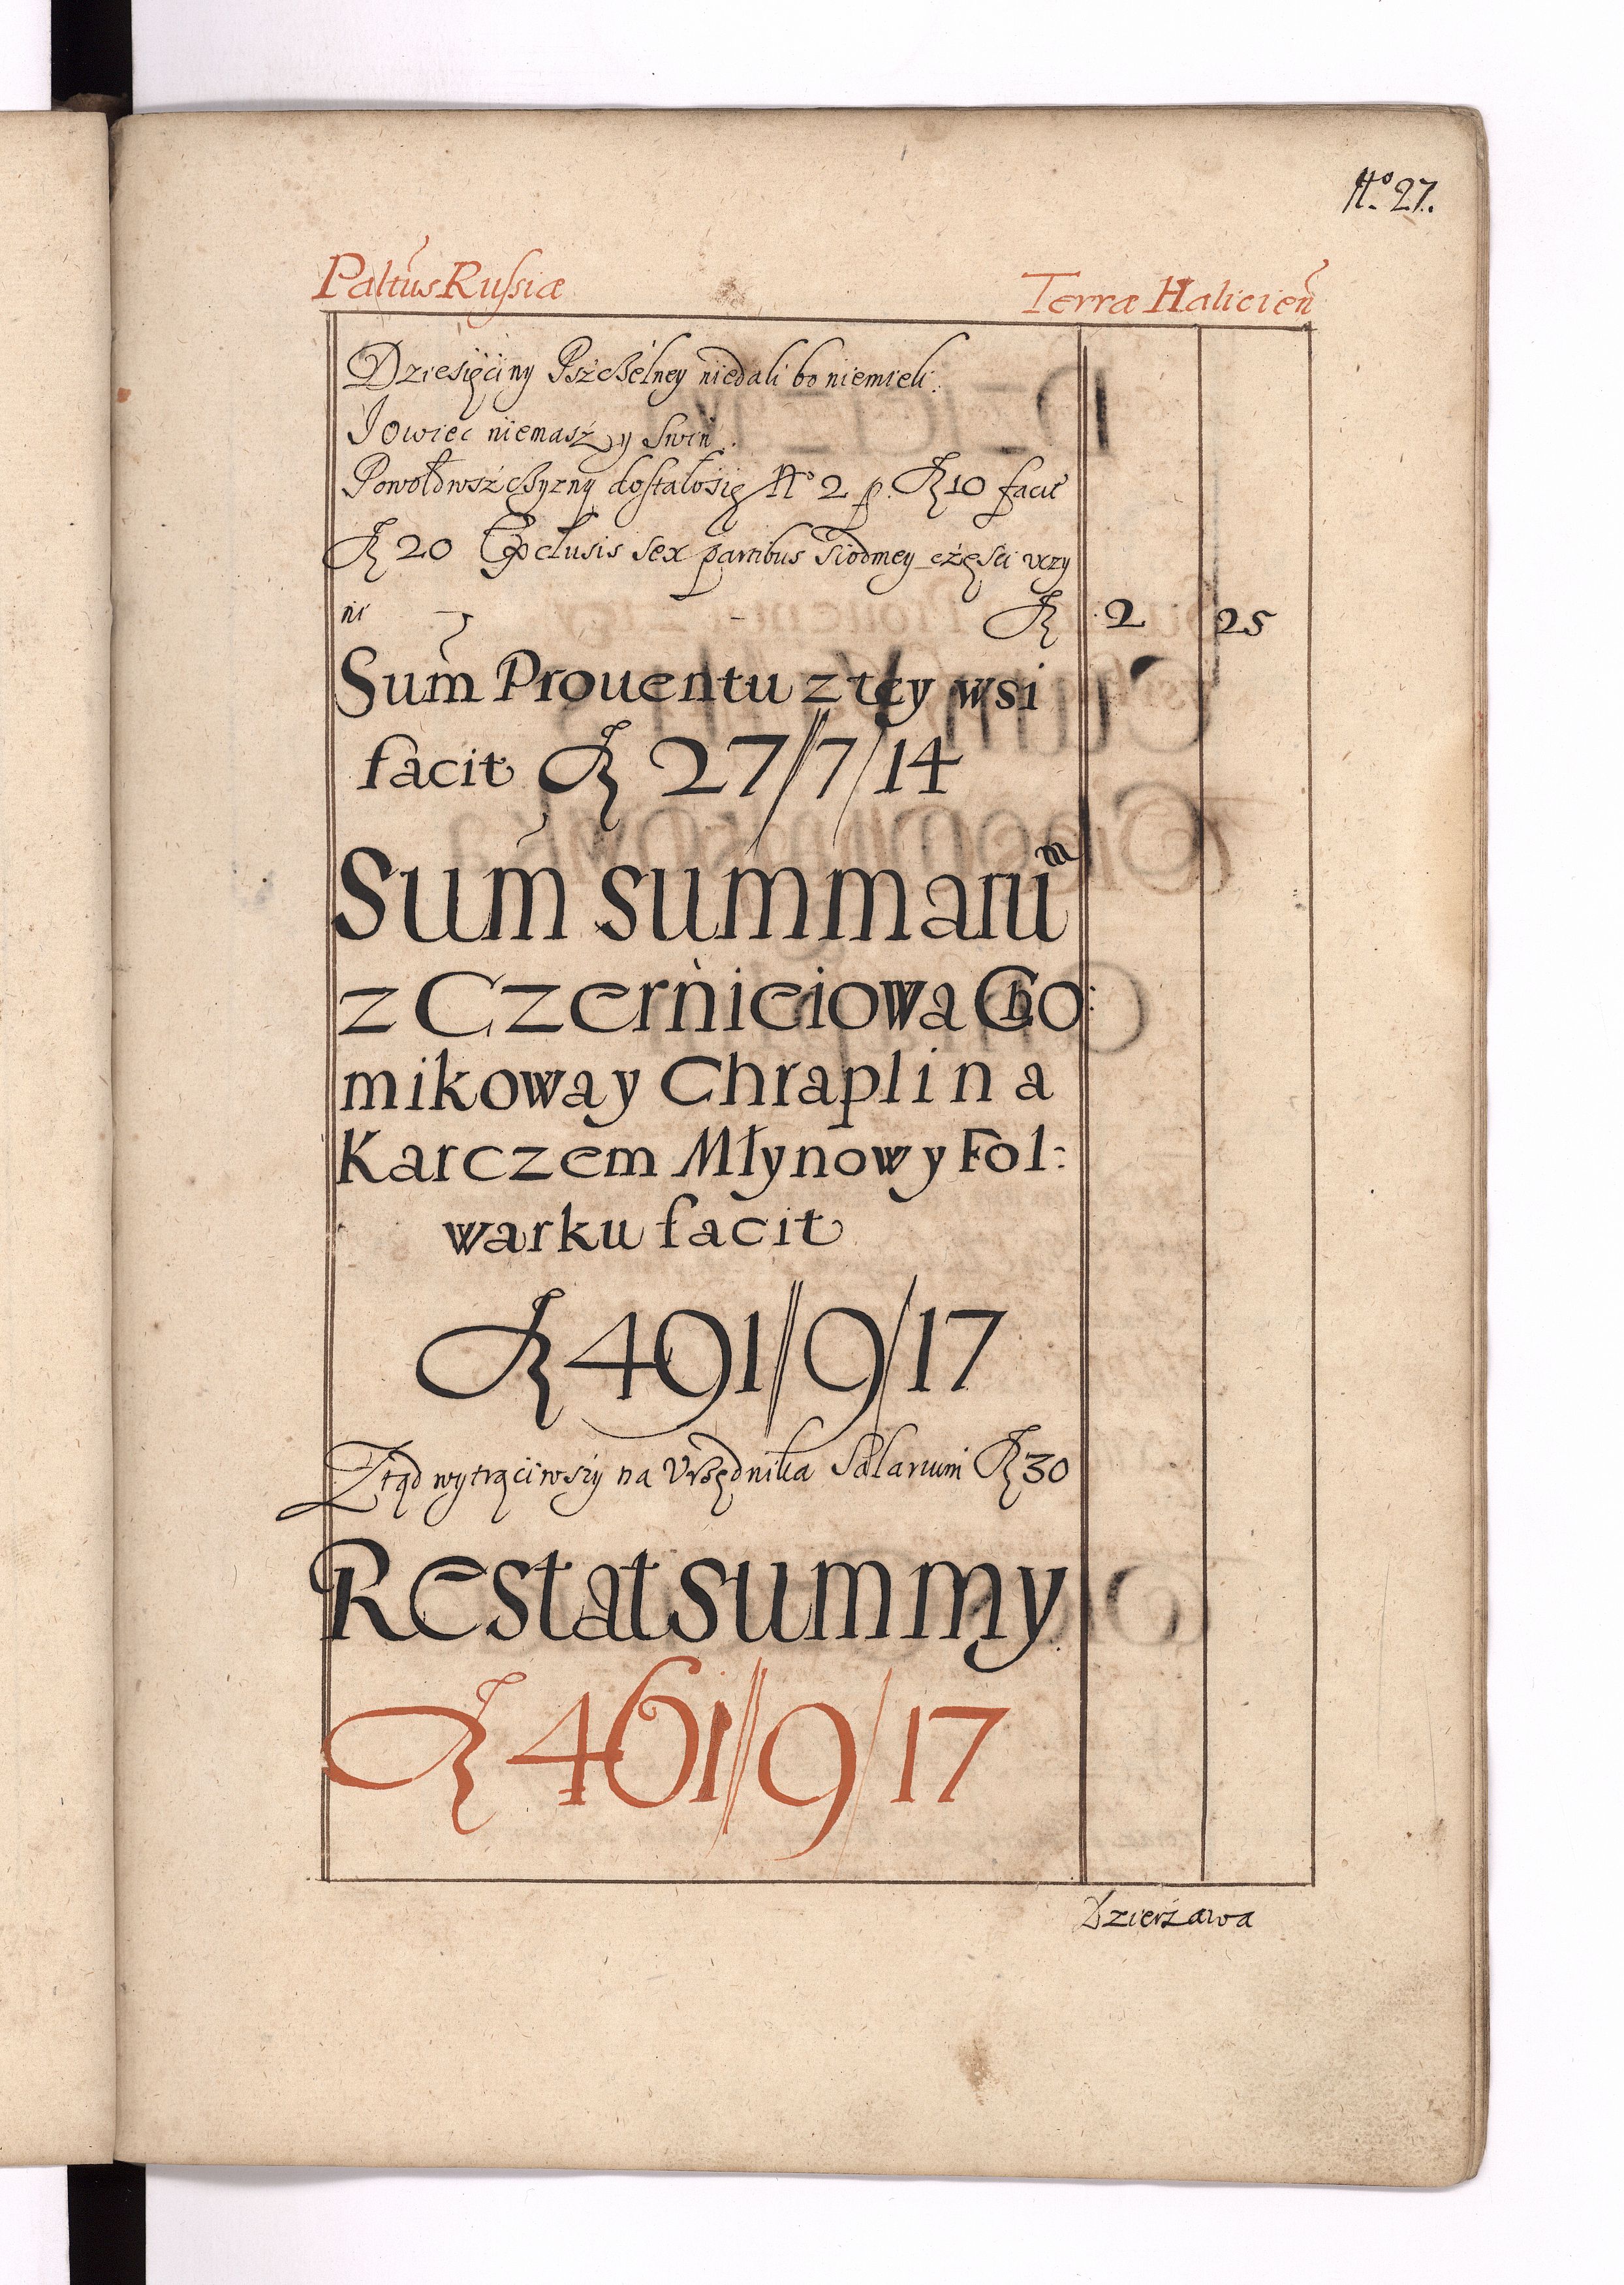 No. 27.
Paltūs Russiæ Terræ Halicień
Dziesięciny Pszczelney niedali bo niemieli.
Jowiec niemasz y Swiń.
Powołowszczyzny dostałosię No 2 p. fl 10 facit
fl 20 Exclusis sex partibus Siodmey częsci uczy
ni fl 2 25
Sum̄ Prouentu z tey wsi
facit fl 27//7/14
Sum̄ summarū
z Czerniciowa Cho:
mikowa y Chraplina
Karczem Młynow y Fol:
warku facit
fl 491//9/17
Ztąd wytrąciwszy na Urzędnika Salarium fl 30
Restat summy
fl 461//9/17
Dzierżawa